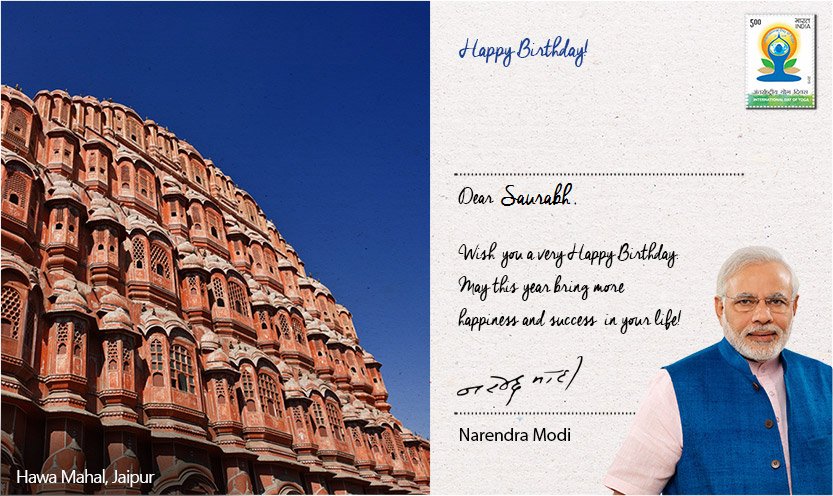 Happy Birthday!
5.00 भारत
INDIA
अंतर्राष्ट्रीय योग दिवस
INTERNATIONAL DAY OF YOGA
Dear Saurabh.
Wish you a very Happy Birthday.
May this year bring more
happiness and success in your life!
नरेन्द्र मोदी
Narendra Modi
Hawa Mahal, Jaipur